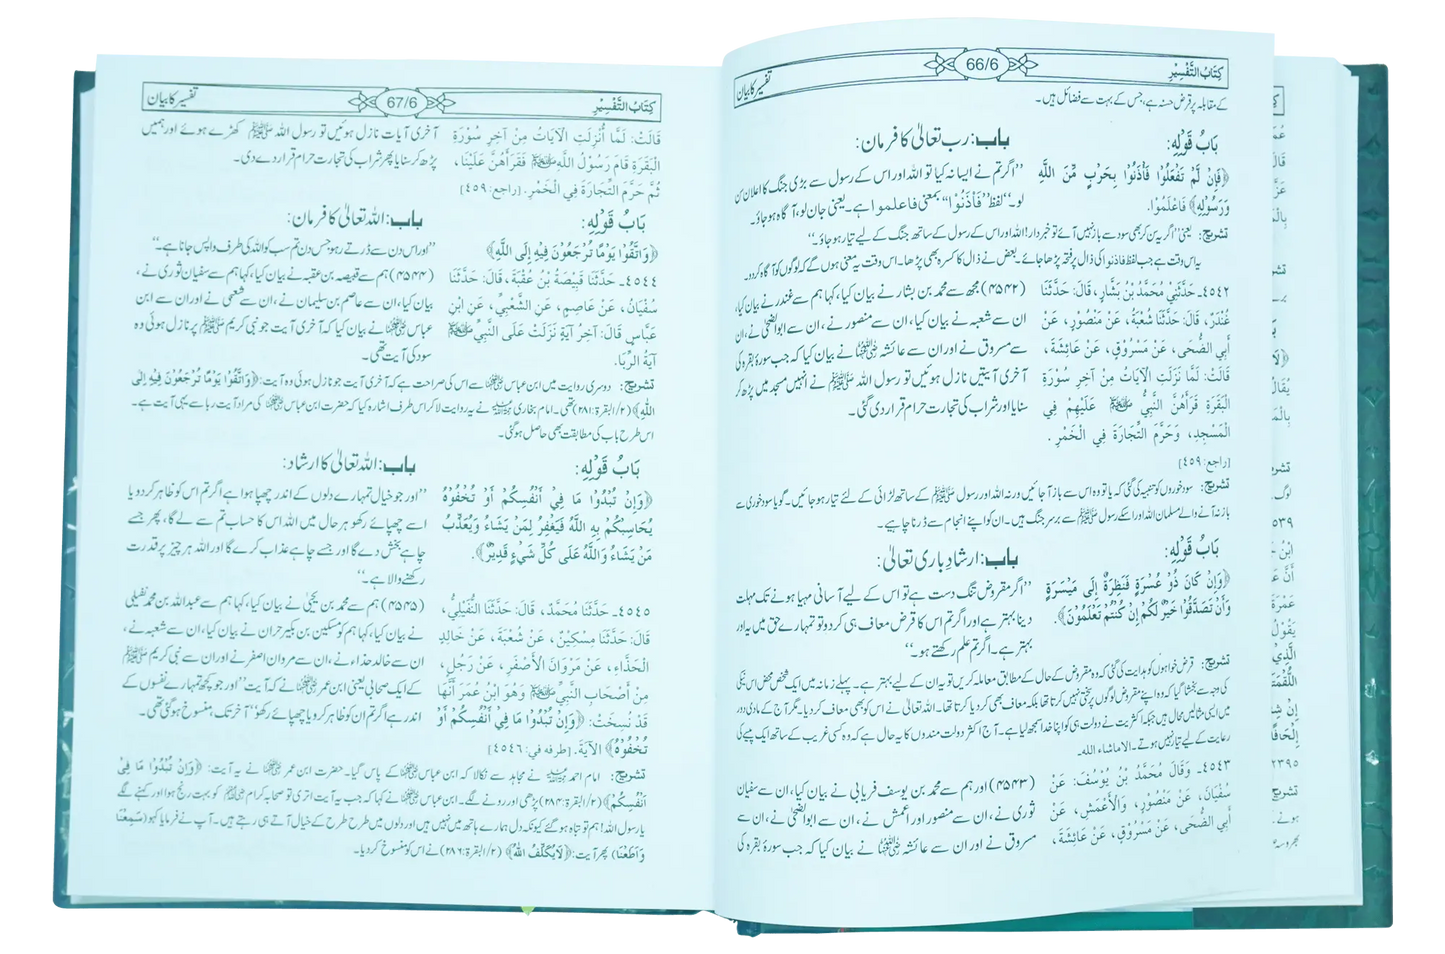 كِتَابُ التَّفْسِيْرِ 66/6 تفسیر کا بیان
کے مقابلہ پر قرض حسنہ ہے، جس کے بہت سے فضائل ہیں۔
بَابُ قَوْلِهِ:
﴿فَإِنْ لَمْ تَفْعَلُوْا فَأْذَنُوْا بِحَرْبٍ مِّنَ اللَّهِ
وَرَسُوْلِهِ﴾ فَاعْلَمُوْا.
باب: رب تعالیٰ کا فرمان:
’’اگر تم نے ایسا نہ کیا تو اللہ اور اس کے رسول سے بڑی جنگ کا اعلان سن
لو۔‘‘ لفظ ’’فَأْذَنُوْا‘‘ بمعنی فاعلموا ہے۔ یعنی جان لو، آگاہ ہو جاؤ۔
تشریح: یعنی ’’اگر یہ سن کر بھی سود سے باز نہیں آئے تو خبردار! اللہ اور اس کے رسول کے ساتھ جنگ کے لیے تیار ہو جاؤ۔‘‘
یہ اس وقت ہے جب لفظ فاذنوا کی ذال پر فتحہ پڑھا جائے۔ بعض نے ذال کا کسرہ بھی پڑھا۔ اس وقت یہ معنی ہوں گے کہ لوگوں کو آگاہ کر دو۔
٤٥٤٢۔ حَدَّثَنِيْ مُحَمَّدُ بْنُ بَشَّارٍ، قَالَ: حَدَّثَنَا
غُنْدَرٌ، قَالَ: حَدَّثَنَا شُعْبَةُ، عَنْ مَنْصُوْرٍ، عَنْ
أَبِي الضُّحَى، عَنْ مَسْرُوْقٍ، عَنْ عَائِشَةَ،
قَالَتْ: لَمَّا نَزَلَتِ الْآيَاتُ مِنْ آخِرِ سُوْرَةِ
الْبَقَرَةِ قَرَأَهُنَّ النَّبِيُّ ﷺ عَلَيْهِمْ فِي
الْمَسْجِدِ، وَحَرَّمَ التِّجَارَةَ فِي الْخَمْرِ.
[راجع: ٤٥٩]
(۴۵۴۲) مجھ سے محمد بن بشار نے بیان کیا، کہا ہم سے غندر نے بیان کیا،
ان سے شعبہ نے بیان کیا، ان سے منصور نے، ان سے ابوالضحیٰ نے، ان
سے مسروق نے اور ان سے عائشہ رضی اللہ عنہا نے بیان کیا کہ جب سورۂ بقرہ کی
آخری آیتیں نازل ہوئیں تو رسول اللہ ﷺ نے انہیں مسجد میں پڑھ کر
سنایا اور شراب کی تجارت حرام قرار دی گئی۔
تشریح: سود خوروں کو تنبیہ کی گئی کہ یا تو وہ اس سے باز آ جائیں ورنہ اللہ اور رسول ﷺ کے ساتھ لڑائی کے لئے تیار ہو جائیں۔ گویا سود خوری سے
باز نہ آنے والے مسلمان اللہ اور اسکے رسول ﷺ سے برسر جنگ ہیں۔ ان کو اپنے انجام سے ڈرنا چاہیے۔
بَابُ قَوْلِهِ:
﴿وَإِنْ كَانَ ذُوْ عُسْرَةٍ فَنَظِرَةٌ إِلَى مَيْسَرَةٍ
وَأَنْ تَصَدَّقُوْا خَيْرٌ لَكُمْ إِنْ كُنْتُمْ تَعْلَمُوْنَ﴾.
باب: ارشادِ باری تعالیٰ:
’’اگر مقروض تنگ دست ہے تو اس کے لیے آسانی مہیا ہونے تک مہلت
دینا بہتر ہے اور اگر تم اس کا قرض معاف ہی کر دو تو تمہارے حق میں یہ اور
بہتر ہے۔ اگر تم علم رکھتے ہو۔‘‘
تشریح: قرض خواہوں کو ہدایت کی گئی کہ وہ مقروض کے حال کے مطابق معاملہ کریں تو یہ ان کے لیے بہتر ہے۔ پہلے زمانہ میں ایک شخص محض اس نیکی
کی وجہ سے بخشا گیا کہ وہ اپنے مقروض لوگوں پر سختی نہیں کرتا تھا بلکہ معاف بھی کر دیا کرتا تھا۔ اللہ تعالیٰ نے اس کو بھی معاف کر دیا۔ مگر آج کے مادی دور
میں ایسی مثالیں محال ہیں جبکہ اکثریت نے دولت ہی کو اپنا خدا سمجھ لیا ہے۔ آج اکثر دولت مندوں کا یہ حال ہے کہ وہ کسی غریب کے ساتھ ایک پیسے کی
رعایت کے لیے تیار نہیں ہوتے۔ الا ماشاء اللہ۔
٤٥٤٣۔ وَقَالَ مُحَمَّدُ بْنُ يُوْسُفَ: عَنْ
سُفْيَانَ، عَنْ مَنْصُوْرٍ، وَالْأَعْمَشِ، عَنْ
أَبِي الضُّحَى، عَنْ مَسْرُوْقٍ، عَنْ عَائِشَةَ،
(۴۵۴۳) اور ہم سے محمد بن یوسف فریابی نے بیان کیا، ان سے سفیان
ثوری نے، ان سے منصور اور اعمش نے، ان سے ابوالضحیٰ نے، ان سے
مسروق نے اور ان سے عائشہ رضی اللہ عنہا نے بیان کیا کہ جب سورۂ بقرہ کی
كِتَابُ التَّفْسِيْرِ 67/6 تفسیر کا بیان
قَالَتْ: لَمَّا أُنْزِلَتِ الْآيَاتُ مِنْ آخِرِ سُوْرَةِ
الْبَقَرَةِ قَامَ رَسُوْلُ اللَّهِ ﷺ فَقَرَأَهُنَّ عَلَيْنَا،
ثُمَّ حَرَّمَ التِّجَارَةَ فِي الْخَمْرِ. [راجع: ٤٥٩]
آخری آیات نازل ہوئیں تو رسول اللہ ﷺ کھڑے ہوئے اور ہمیں
پڑھ کر سنایا پھر شراب کی تجارت حرام قرار دے دی۔
بَابُ قَوْلِهِ:
﴿وَاتَّقُوْا يَوْمًا تُرْجَعُوْنَ فِيْهِ إِلَى اللَّهِ﴾
باب: اللہ تعالیٰ کا فرمان:
’’اور اس دن سے ڈرتے رہو جس دن تم سب کو اللہ کی طرف واپس جانا ہے۔‘‘
٤٥٤٤۔ حَدَّثَنَا قَبِيْصَةُ بْنُ عُقْبَةَ، قَالَ: حَدَّثَنَا
سُفْيَانُ، عَنْ عَاصِمٍ، عَنِ الشَّعْبِيِّ، عَنِ ابْنِ
عَبَّاسٍ قَالَ: آخِرُ آيَةٍ نَزَلَتْ عَلَى النَّبِيِّ ﷺ
آيَةُ الرِّبَا.
(۴۵۴۴) ہم سے قبیصہ بن عقبہ نے بیان کیا، کہا ہم سے سفیان ثوری نے،
بیان کیا، ان سے عاصم بن سلیمان نے، ان سے شعبی نے اور ان سے ابن
عباس رضی اللہ عنہما نے بیان کیا کہ آخری آیت جو نبی کریم ﷺ پر نازل ہوئی وہ
سود کی آیت تھی۔
تشریح: دوسری روایت میں ابن عباس رضی اللہ عنہما سے اس کی صراحت ہے کہ آخری آیت جو نازل ہوئی وہ آیت: ﴿وَاتَّقُوْا يَوْمًا تُرْجَعُوْنَ فِيْهِ إِلَى
اللَّهِ﴾ (۲/البقرۃ:۲۸۱) تھی۔ امام بخاری رحمہ اللہ نے یہ روایت لا کر اس طرف اشارہ کیا کہ حضرت ابن عباس رضی اللہ عنہما کی مراد آیت ربا سے یہی آیت ہے۔
اس طرح باب کی مطابقت بھی حاصل ہو گئی۔
بَابُ قَوْلِهِ:
﴿وَإِنْ تُبْدُوْا مَا فِيْ أَنْفُسِكُمْ أَوْ تُخْفُوْهُ
يُحَاسِبْكُمْ بِهِ اللَّهُ فَيَغْفِرُ لِمَنْ يَشَاءُ وَيُعَذِّبُ
مَنْ يَشَاءُ وَاللَّهُ عَلَى كُلِّ شَيْءٍ قَدِيْرٌ﴾.
باب: اللہ تعالیٰ کا ارشاد:
’’اور جو خیال تمہارے دلوں کے اندر چھپا ہوا ہے اگر تم اس کو ظاہر کر دو یا
اسے چھپائے رکھو ہر حال میں اللہ اس کا حساب تم سے لے گا، پھر جسے
چاہے بخش دے گا اور جسے چاہے عذاب کرے گا اور اللہ ہر چیز پر قدرت
رکھنے والا ہے۔‘‘
٤٥٤٥۔ حَدَّثَنَا مُحَمَّدٌ، قَالَ: حَدَّثَنَا النُّفَيْلِيُّ،
قَالَ: حَدَّثَنَا مِسْكِيْنٌ، عَنْ شُعْبَةَ، عَنْ خَالِدٍ
الْحَذَّاءِ، عَنْ مَرْوَانَ الْأَصْفَرِ، عَنْ رَجُلٍ،
مِنْ أَصْحَابِ النَّبِيِّ ﷺ وَهُوَ ابْنُ عُمَرَ أَنَّهَا
قَدْ نُسِخَتْ: ﴿وَإِنْ تُبْدُوْا مَا فِيْ أَنْفُسِكُمْ أَوْ
تُخْفُوْهُ﴾ الْآيَةَ. [طرفه في: ٤٥٤٦]
(۴۵۴۵) ہم سے محمد بن یحییٰ نے بیان کیا، کہا ہم سے عبداللہ بن محمد نفیلی
نے بیان کیا، کہا ہم کو مسکین بن بکیر حران نے بیان کیا، ان سے شعبہ نے،
ان سے خالد حذاء نے، ان سے مروان اصفر نے اور ان سے نبی کریم ﷺ
کے ایک صحابی یعنی ابن عمر رضی اللہ عنہما نے کہ آیت ’’اور جو کچھ تمہارے نفسوں کے
اندر ہے اگر تم ان کو ظاہر کرو یا چھپائے رکھو‘‘ آخر تک منسوخ ہو گئی تھی۔
تشریح: امام احمد رحمہ اللہ نے مجاہد سے نکالا کہ ابن عباس رضی اللہ عنہما کے پاس گیا۔ حضرت ابن عمر رضی اللہ عنہما نے یہ آیت: ﴿وَإِنْ تُبْدُوْا مَا فِيْ
أَنْفُسِكُمْ﴾ (۲/البقرۃ:۲۸۴) پڑھی اور رونے لگے۔ ابن عباس رضی اللہ عنہما نے کہا کہ جب یہ آیت اتری تو صحابہ کرام کو بہت رنج ہوا اور کہنے لگے
یا رسول اللہ! ہم تو تباہ ہو گئے کیونکہ دل ہمارے ہاتھ میں نہیں ہیں اور دلوں میں طرح طرح کے خیال آتے ہی رہتے ہیں۔ آپ نے فرمایا کہو (سَمِعْنَا
وَاَطَعْنَا) پھر آیت: ﴿لَا يُكَلِّفُ اللَّهُ﴾ (۲/البقرۃ:۲۸۶) نے اس کو منسوخ کر دیا۔